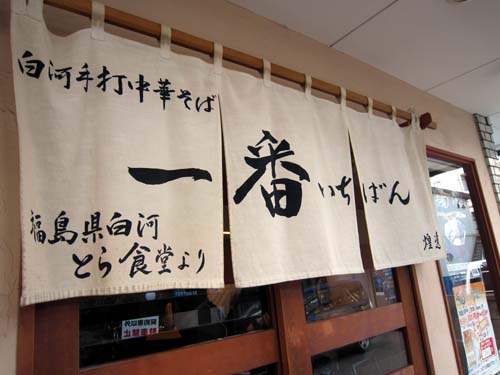 白河手打中華そば
一番いちばん
福島県白河
とら食堂より